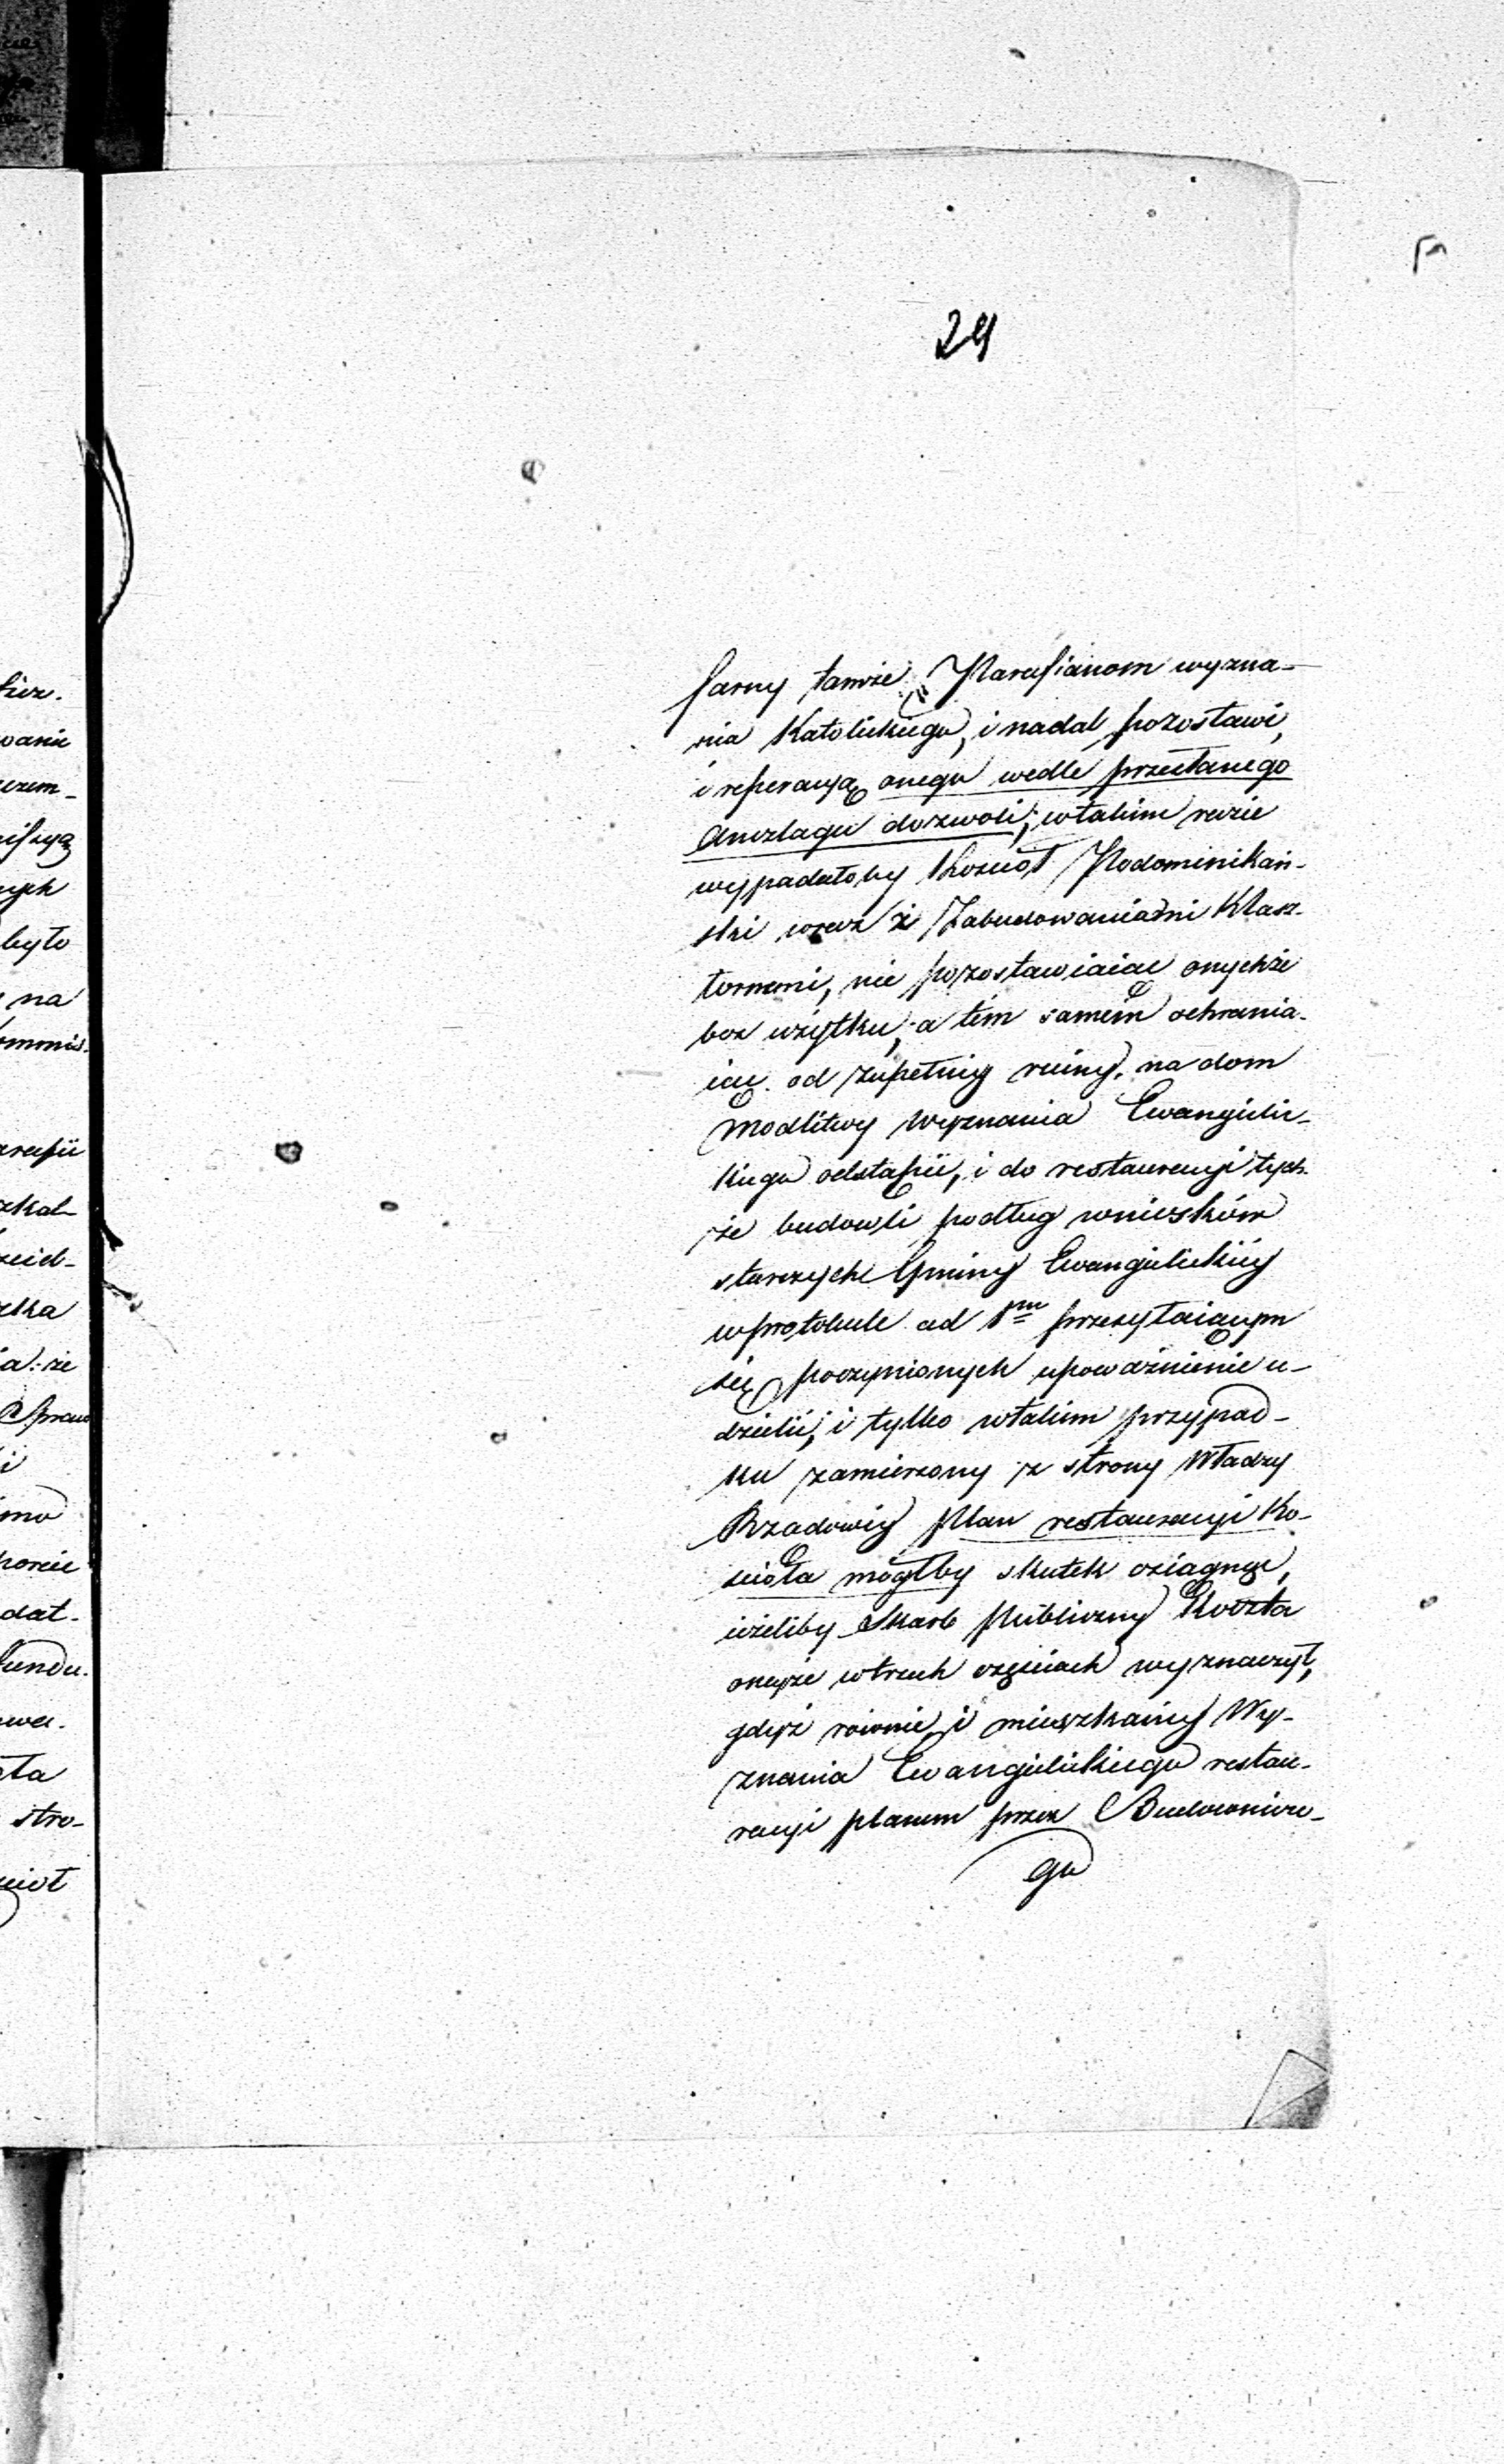 29
farny tamże Parafianom wyzna-
nia Katolickiego, i nadal pozostawi,
i reperacyą onego wedle przesłanego
Anszlagu dozwoli; wtakim razie
wypadałoby Kościoł Podominikań-
ski wraz z Zabudowaniami Klasz-
tornemi, nie pozostawiaiąc onychże
bez użytku, a tém samém ochrania-
iąc od zupełney ruiny, na dom
Modlitwy Wyznania Ewangielic-
kiego odstąpić, i do restauracyi tych-
że budowli podług wniosków
starszych Gminy Ewangielickiéy
wprotokule ad 1m przesyłaiącym
się poczynionych upoważnienie u-
dzielić; i tylko wtakim przypad-
ku zamierzony ze strony Władzy
Rządowéy Plan restauracyi Ko-
ścioła mógłby skutek osiągnąć,
ieżeliby Skarb Publiczny Koszta
oneyże wtrzech częściach wyznaczył,
gdyż rownie i mieszkańcy Wy-
znania Ewangielickiego restau-
racyi planem przez Budownicze-
go
wania
nych
było
na
szka
a: że
i
dat-
Fundu-
stro-